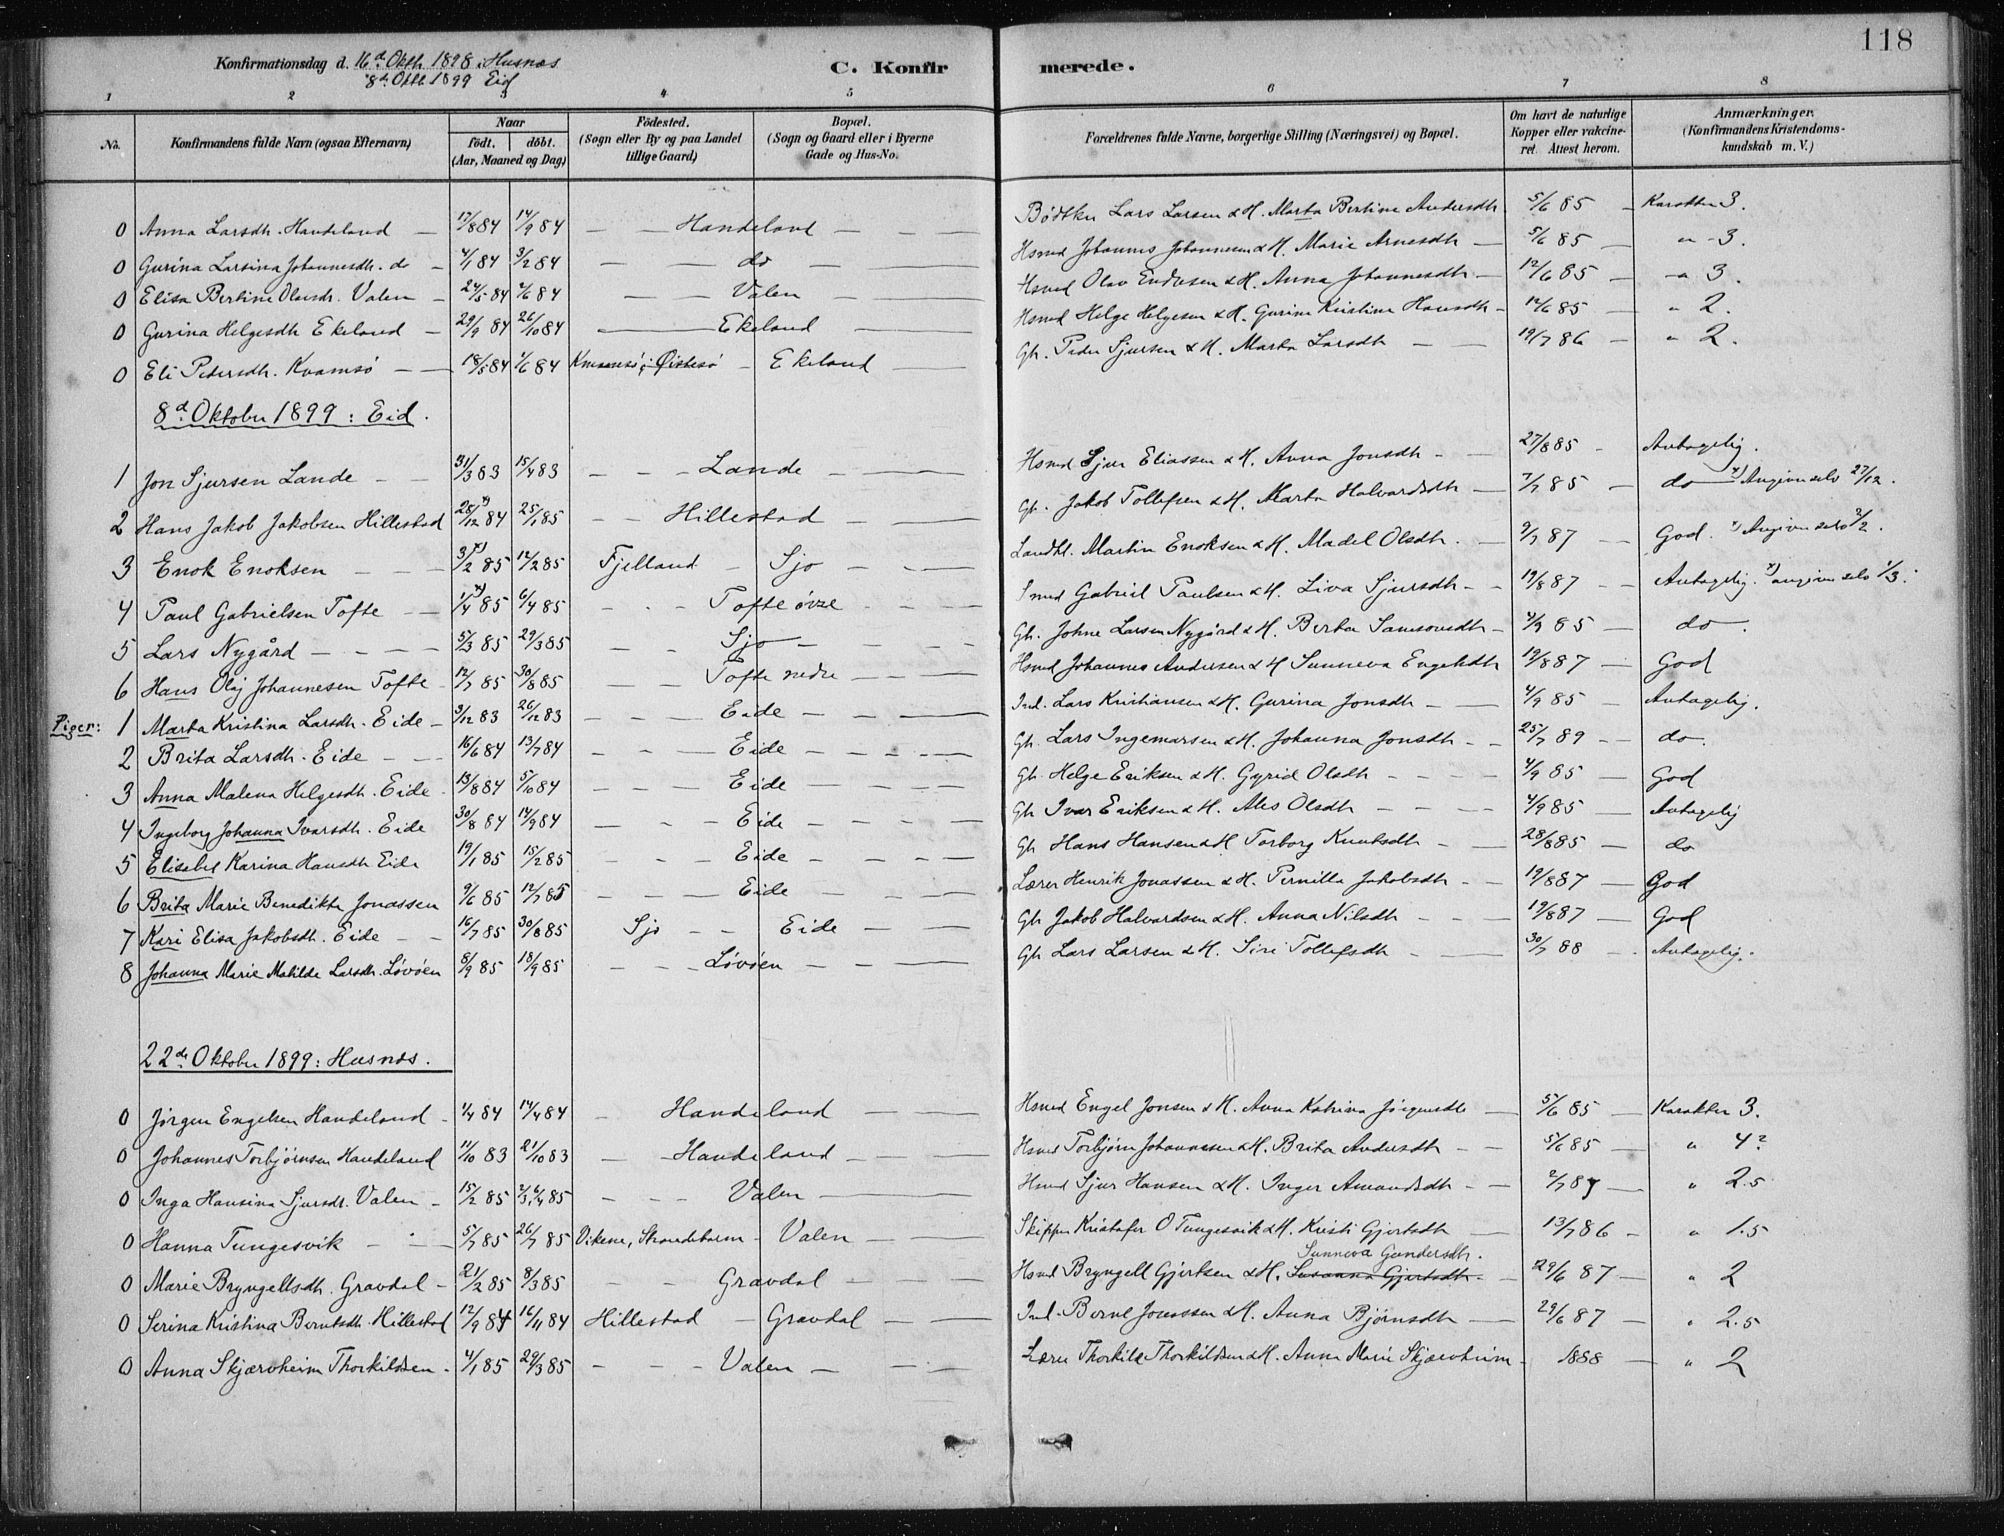 118
Konfirmationsdag d. 16d Oktb. 1898. Husnæs
8d Oktb. 1899 Eid
C. Konfir merede.
1 2 3 4 5 6 7 8
No. Konfirmandens fulde Navn (ogsaa Efternavn) Naar födt. döbt. (Aar, Maaned og Dag) Födested. (Sogn eller By og paa Landet tillige Gaard) Bopæl. (Sogn og Gaard eller i Byerne Gade og Hus-No. Forældrenes fulde Navne, borgerlige Stilling (Næringsvei) og Bopæl. Om havt de naturlige Kopper eller vakcineret. Attest herom. Anmærkninger. (Konfirmandens Kristendomskundskab m. V.)
0 Anna Larsdh. Handeland — 17/8 84 14/9 84 — — Handeland — — — Bødtker Lars Larsen & H. Marta Bertine Andersdh. 5/6 85 — Karakter 3.
0 Gurina Larsina Johannesdh. do — 4/1 84 3/2 84 — — do — — Hsmd Johannes Johannesen & H. Marie Arnesdh — 5/6 85 — " 3.
0 Elisa Bertine Olavsdr. Valen — 24/5 84 2/6 84 — — Valen — — Hsmd Olav Endresen & H. Anna Johannesdh — 12/6 85 — " 3.
0 Gurina Helgesdh Ekeland — 29/9 84 26/10 84 — Ekeland — Hsmd Helge Helgesen & H. Gurine Kristine Hansdh — 12/6 85 — " 2.
0 Eli Pedersdh. Kvamsö — — 18/5 84 1/6 84 Kvamsö, Östesö — Ekeland — Gb. Peder Sjursen & H. Marta Larsdh — — 19/7 86 — " 2.
8d Oktober 1899: Eid.
1 Jon Sjursen Lande — — 31/3 83 15/4 83 — — — Lande — — Hsmd Sjur Eliassen & H. Anna Jonsdh — — 27/8 85 — Antagelig.
2 Hans Jakob Jakobsen Hillestad 28/12 84 x) 25/1 85 — — Hillestad — — Gb. Jakob Tollefsen & H. Marta Halvardsdh — 7/7 85 — do x) Angivensels 27/12.
3 Enok Enoksen — — — 3/2 85 x) 12/2 85 Fjelland — Sjo — — — Landhl. Martin Enoksen & H. Madel Olsdh. — 9/7 87 — God. x) Angivensels 2/2.
4 Paul Gabrielsen Tofte — — 1/4 85 x) 6/4 85 — — — Tofte øvre — — Smed Gabriel Paulsen & H. Liva Sjursdh — — 19/8 87 — Antagelig. x) angivensels 1/3.
5 Lars Nygård — — — — 5/3 85 29/3 85 — — Sjo — — — Gb. Johne Larsen Nygård & H. Berta Samsonsdh — 4/9 85 — do.
6 Hans Olaj Johannesen Tofte — 12/7 85 30/8 85 — — Tofte nedre — — — Hsmd Johannes Andersen & H Sunneva Engelsdh 19/8 87 — God
Piger: 1 Marta Kristina Larsdh. Eide — 3/12 83 26/12 83 — — — Eide — — — — Ind. Lars Kristiansen & H. Gurina Jonsdh — — 4/9 85 — Antagelig.
2 Brita Larsdh. Eide — — — 16/6 84 13/7 84 — — — Eide — — — Gb. Lars Ingemarsen & H. Johanna Jonsdh — — 25/7 89 — do.
3 Anna Malena Helgesdh. Eide — 13/8 84 5/10 84 — — — Eide — — — Gb. Helge Eriksen & H. Gyrid Olsdh — — — — 4/9 85 — God
4 Ingeborg Johanna Ivarsdh. Eide 30/8 84 14/9 84 — — — Eide — — — Gb Ivar Eriksen & H. Ales Olsdh — — — — 4/9 85 — Antagelig
5 Elisabet Karina Hansdh Eide 19/1 85 15/2 85 — — — Eide — — — — Gb Hans Hansen & H Torborg Knutsdh — — 28/8 85 — do
6 Brita Marie Benedikte Jonassen 9/6 85 12/7 85 — — — Eide — — — Lærer Henrik Jonassen & H. Pernilla Jakobsdh — — 19/8 87 — God
7 Kari Elisa Jakobsdh. Eide — — 16/7 85 30/8 85 Sjo — — Eide — — — Gb Jakob Halvardsen & H. Anna Nilsdh — — — 19/8 87 — God
8 Johanna Marie Matilde Larsdh. Løvöen 8/9 85 18/9 85 — — — Løvöen — — — Gb Lars Larsen & H. Siri Tollefsdh — — 30/7 88 — Antagelig.
22de Oktober 1899: Husnæs.
0 Jørgen Engelsen Handeland — 1/4 84 14/4 84 — Handeland — — Hsmd Engel Jonsen & H. Anna Katrina Jörgensdh — 5/6 85 — Karakter 3.
0 Johannes Torbjørnsen Handeland 11/10 83 21/10 83 — Handeland — — — Hsmd Torbjørn Johannesen & H. Brita Andersdh — — 5/6 85 — " 4?
0 Inga Hansina Sjursdr. Valen — 15/2 85 2/3 6/4 85 — — — Valen — — Hsmd Sjur Hansen & H. Inger Amundsdh — — 2/7 87 — " 2.5
0 Hanna Tungesvik — — — 5/7 85 26/7 85 Vikene, Strandebarm — Valen — — Skipper Kristofer O Tungesvik & H. Kristi Gjertsdh — 13/7 86 — " 1.5
Sunneva Gundersdh.
0 Marie Bryngellsdh. Gravdal — 21/2 85 8/3 85 — — Gravdal — — Hsmd Bryngell Gjertsen & H. Susanna Gjertsdh — 29/6 87 — " 2
0 Serina Kristina Berntsdh. Hillestad 12/9 84 16/11 84 Hillestad — Gravdal — — Ind. Bernt Jonassen & H. Anna Bjørnsdh — 29/6 87 — " 2.5
0 Anna Skjærvheim Thorkildsen — 4/1 85 29/3 85 — — — Valen — — — Lærer Thorkild Thorkildsen & H. Anna Marie Skjærvheim — 1888 — " 2